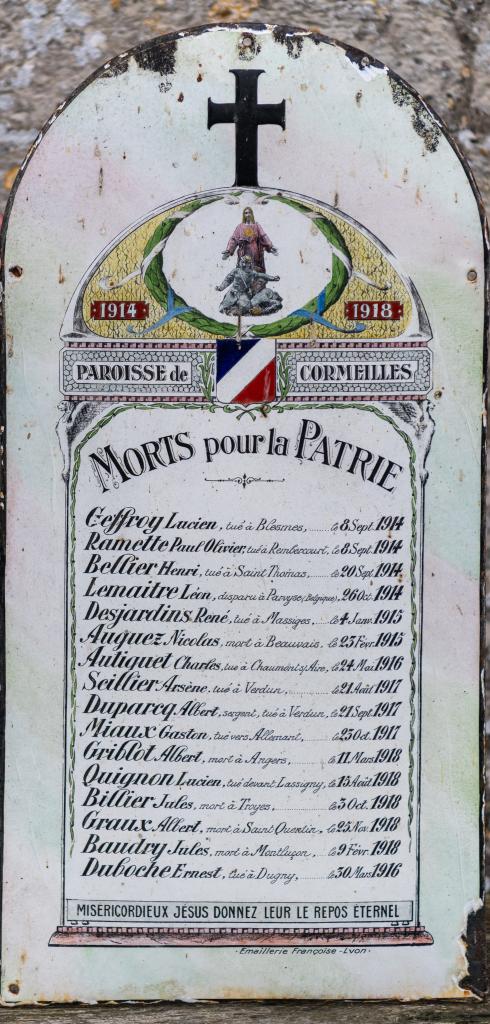 1914 1918
PAROISSE de CORMEILLES
MORTS pour la PATRIE
Geffroy Lucien, tué à Blesmes, le 8 Sept. 1914
Ramette Paul Olivier, tué à Rembercourt, le 8 Sept. 1914
Bellier Henri, tué à Saint Thomas, le 20 Sept. 1914
Lemaitre Léon, disparu à Parvyse (Belgique), 26 Oct. 1914
Desjardins René, tué à Massiges, le 4 Janv. 1915
Auguez Nicolas, mort à Beauvais, le 23 Févr. 1915
Autiquet Charles, tué à Chaumont s/ Aire, le 24 Mai 1916
Seillier Arsène, tué à Verdun, le 21 Août 1917
Duparcq Albert, sergent, tué à Verdun, le 21 Sept. 1917
Miaux Gaston, tué vers Allemant, le 23 Oct. 1917
Griblot Albert, mort à Angers, le 11 Mars 1918
Quignon Lucien, tué devant Lassigny, le 15 Août 1918
Billier Jules, mort à Troyes, le 3 Oct. 1918
Graux Albert, mort à Saint Quentin, le 25 Nov. 1918
Baudry Jules, mort à Montluçon, le 9 Févr. 1918
Duboche Ernest, tué à Dugny, le 30 Mars 1916
MISERICORDIEUX JÉSUS DONNEZ LEUR LE REPOS ÉTERNEL
Emaillerie Française - Lyon